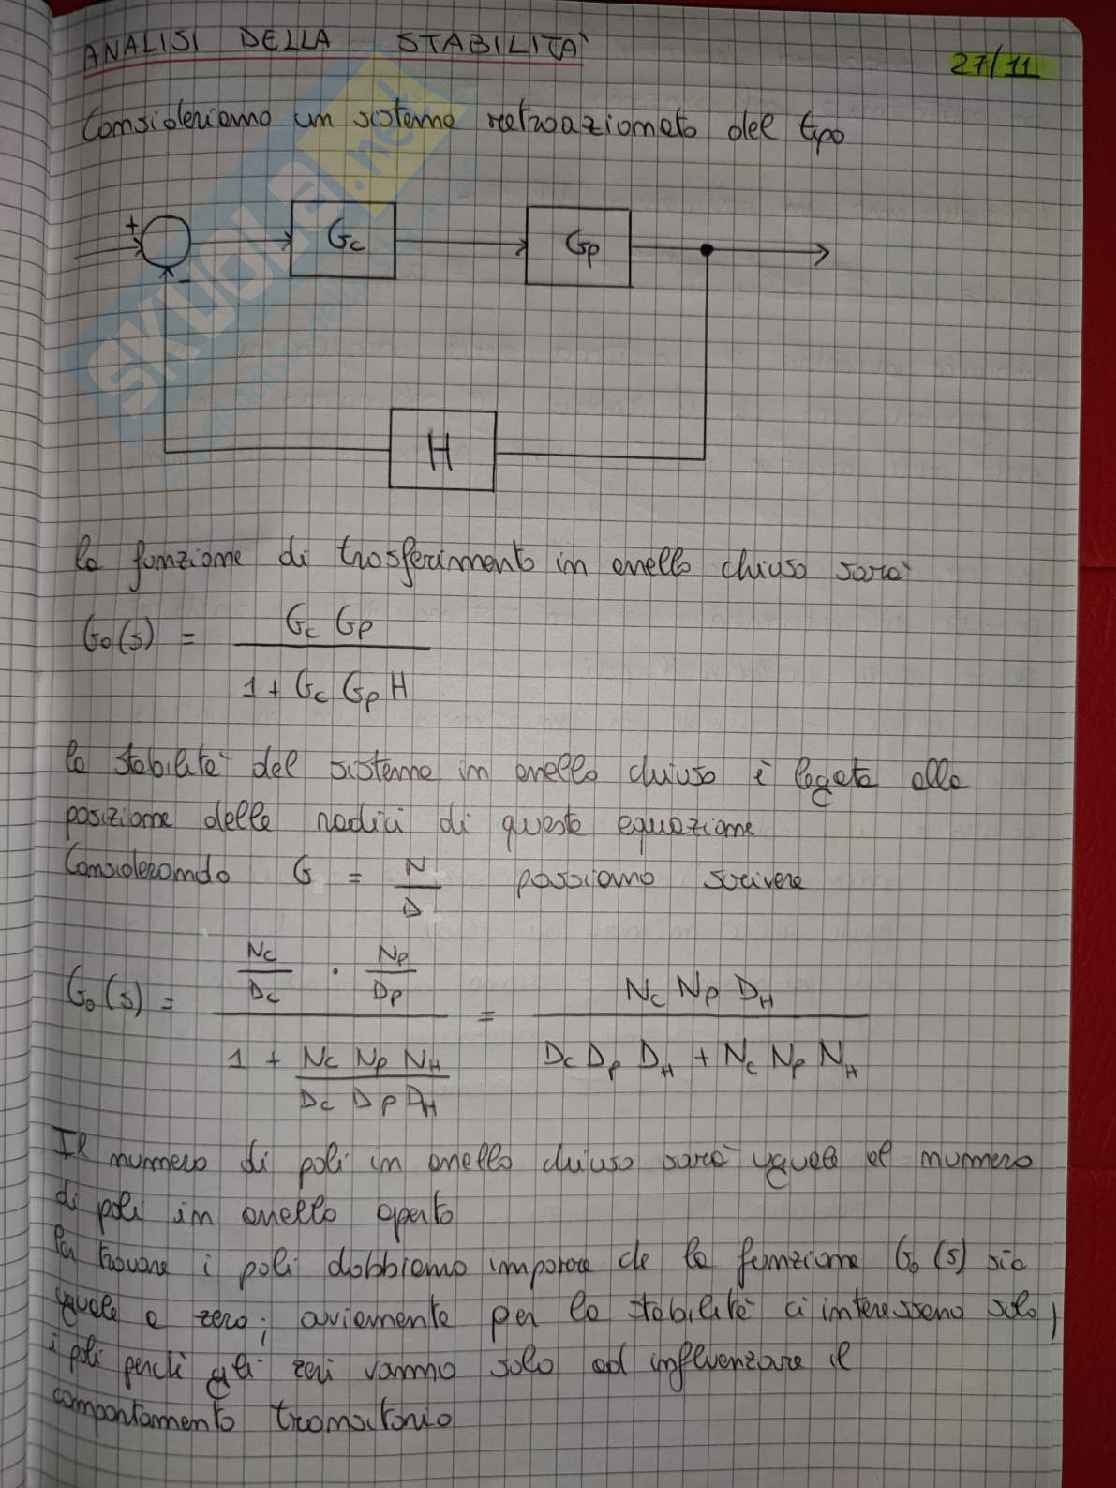 ANALISI DELLA STABILITÀ
27/11
Consideriamo un sistema retroazionato del tipo
+ Gc Gp
-
H
la funzione di trasferimento in anello chiuso sarà
G0(s) = Gc Gp / 1 + Gc Gp H
la stabilità del sistema in anello chiuso è legata alla
posizione delle radici di questa equazione
Considerando G = N / D possiamo scrivere
G0(s) = Nc/Dc · Np/Dp / 1 + Nc Np NH / Dc Dp DH = Nc Np DH / Dc Dp DH + Nc Np NH
Il numero di poli in anello chiuso sarà uguale al numero
di poli in anello aperto
Per trovare i poli dobbiamo imporre che la funzione G0(s) sia
uguale a zero; ovviamente per la stabilità ci interessano solo
i poli perché gli zeri vanno solo ad influenzare il
comportamento transitorio
SKUOLA.net